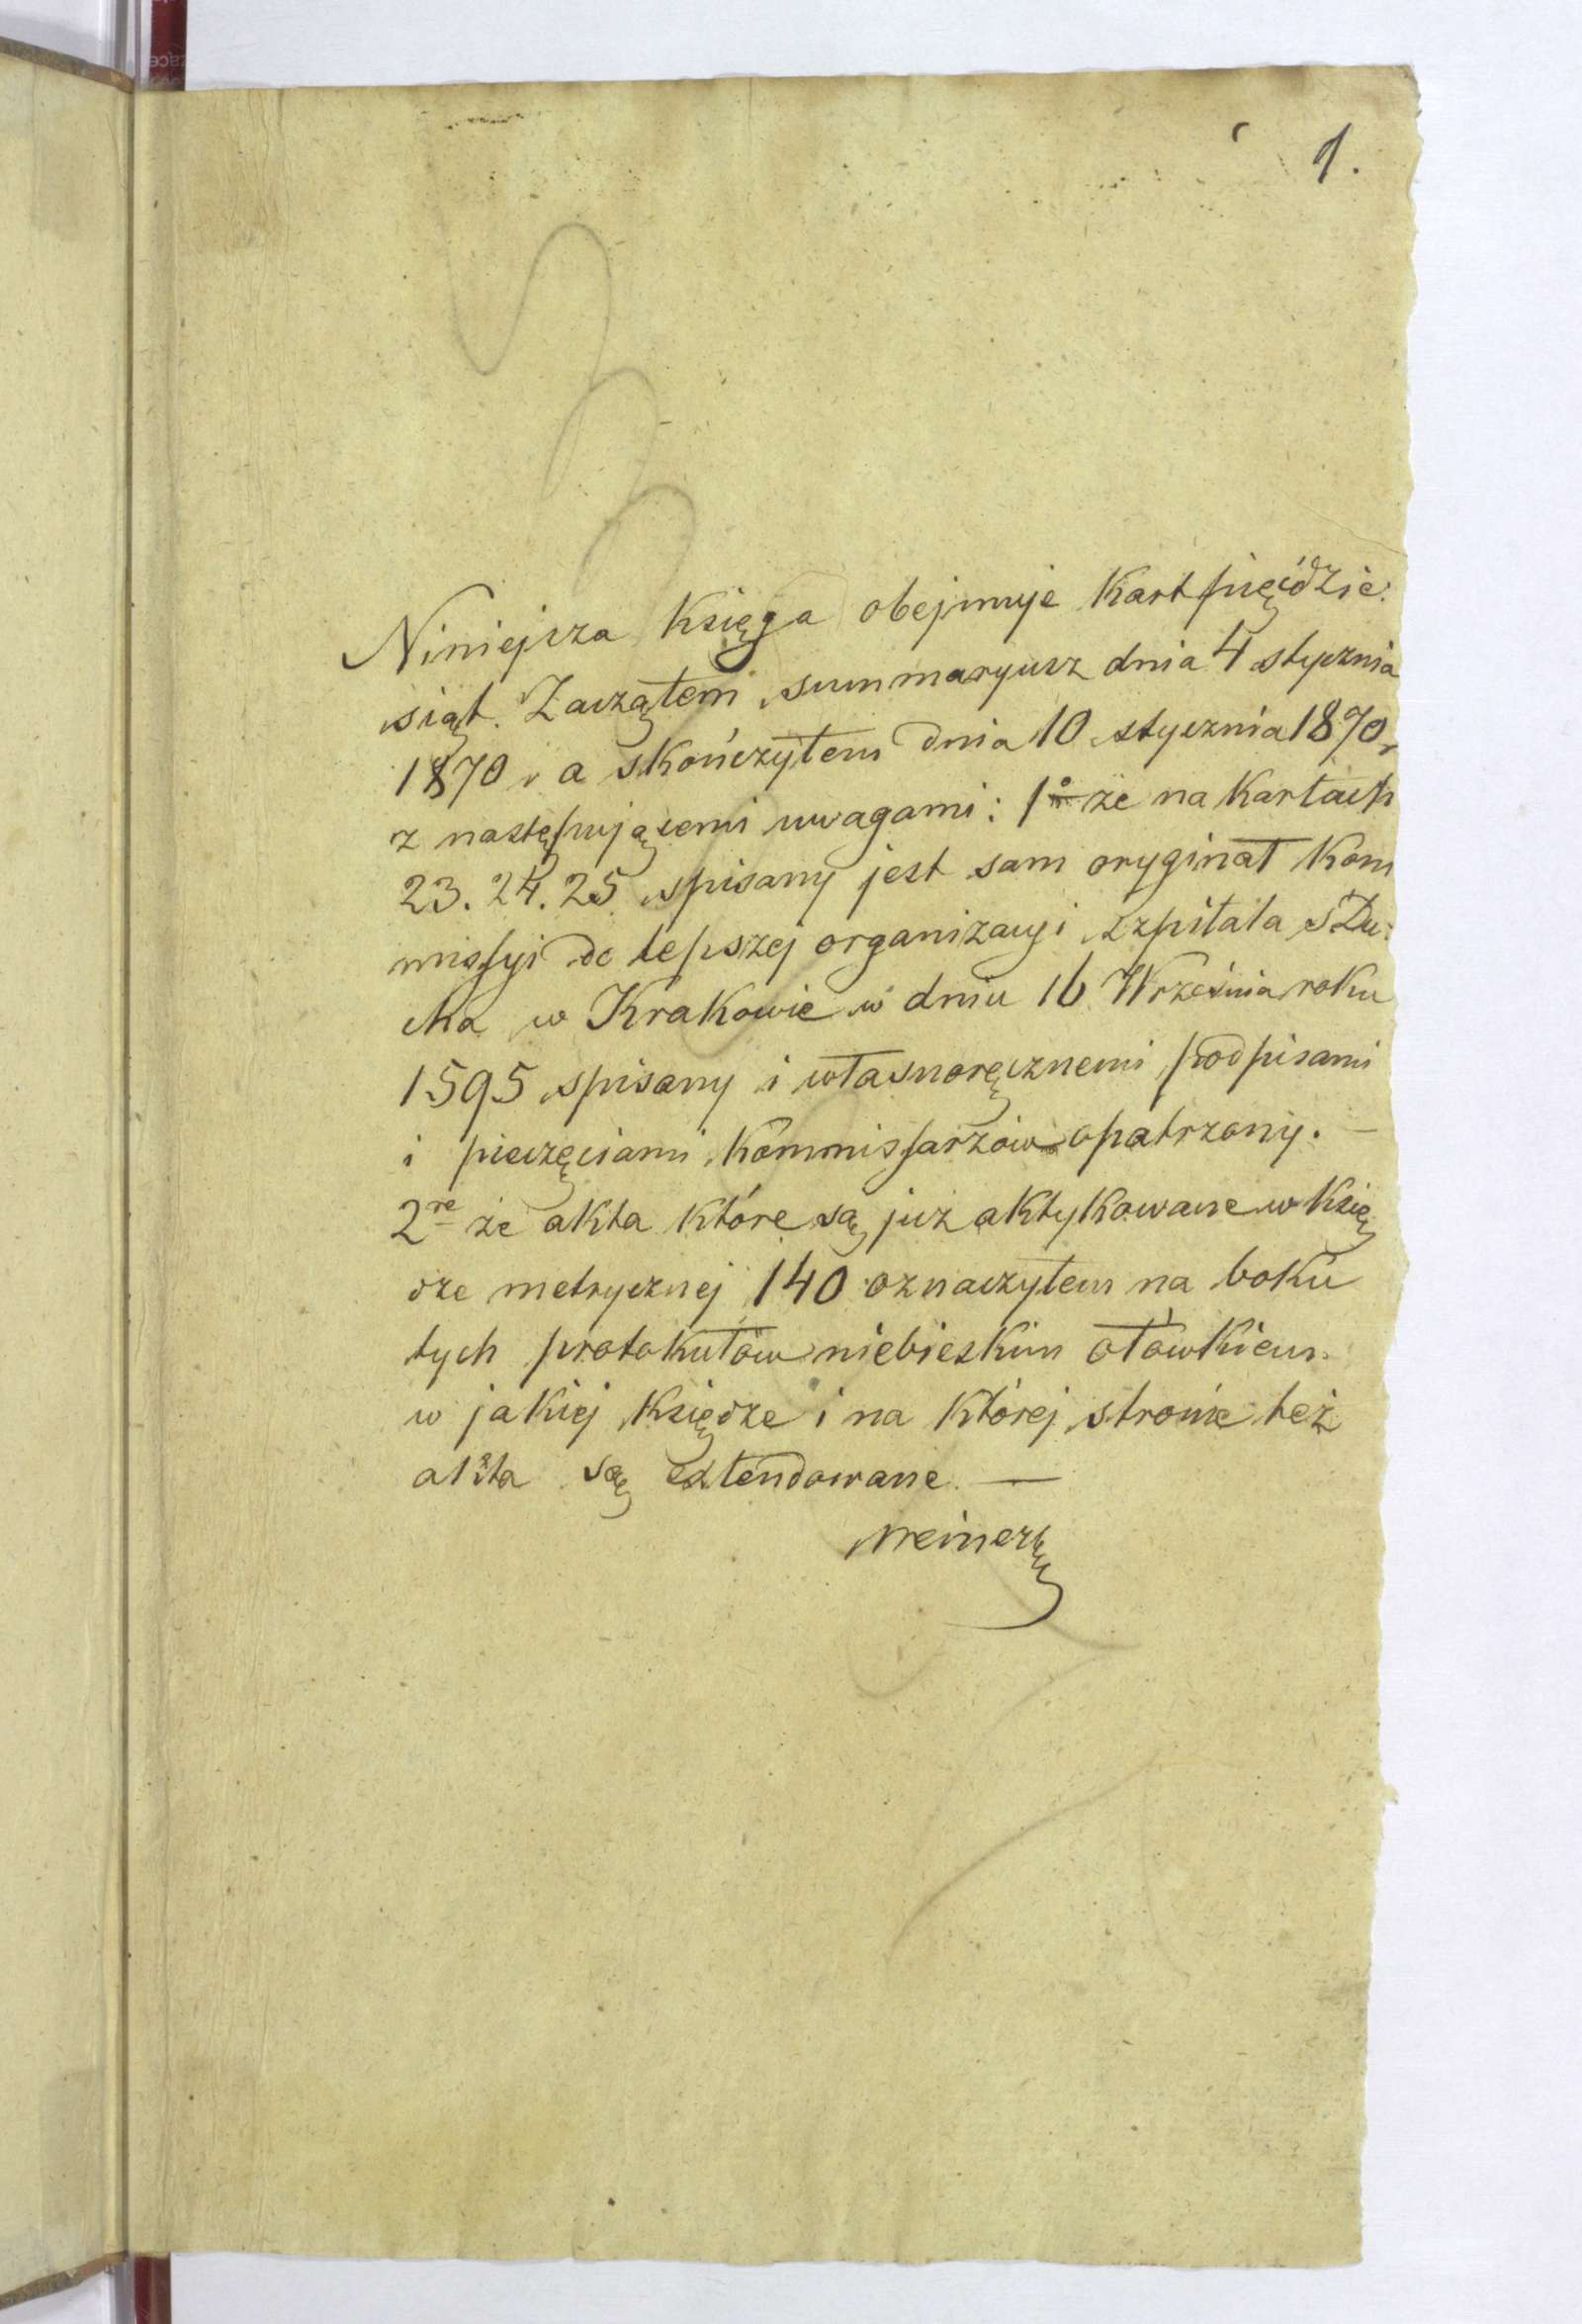 1.
Niniejsza Księga obejmuje Kart pięćdzie:
siąt. Zacząłem summaryusz dnia 4 stycznia
1870 r a skończyłem dnia 10 stycznia 1870 r
z następującemi uwagami: 1º że na Kartach
23. 24. 25 spisany jest sam oryginał Kom
missyi do lepszej organizacyi szpitala s Du:
cha w Krakowie w dniu 16 Września roku
1595 spisany i własnoręcznemi podpisami
i pieczęciami Kommissarzów opatrzony. —
2re że akta które są już aktykowane w Księ
dze metrycznej 140 oznaczyłem na boku
tych protokułów niebieskim ołówkiem
w jakiej Księdze i na której stronie też
akta są extendowane. —